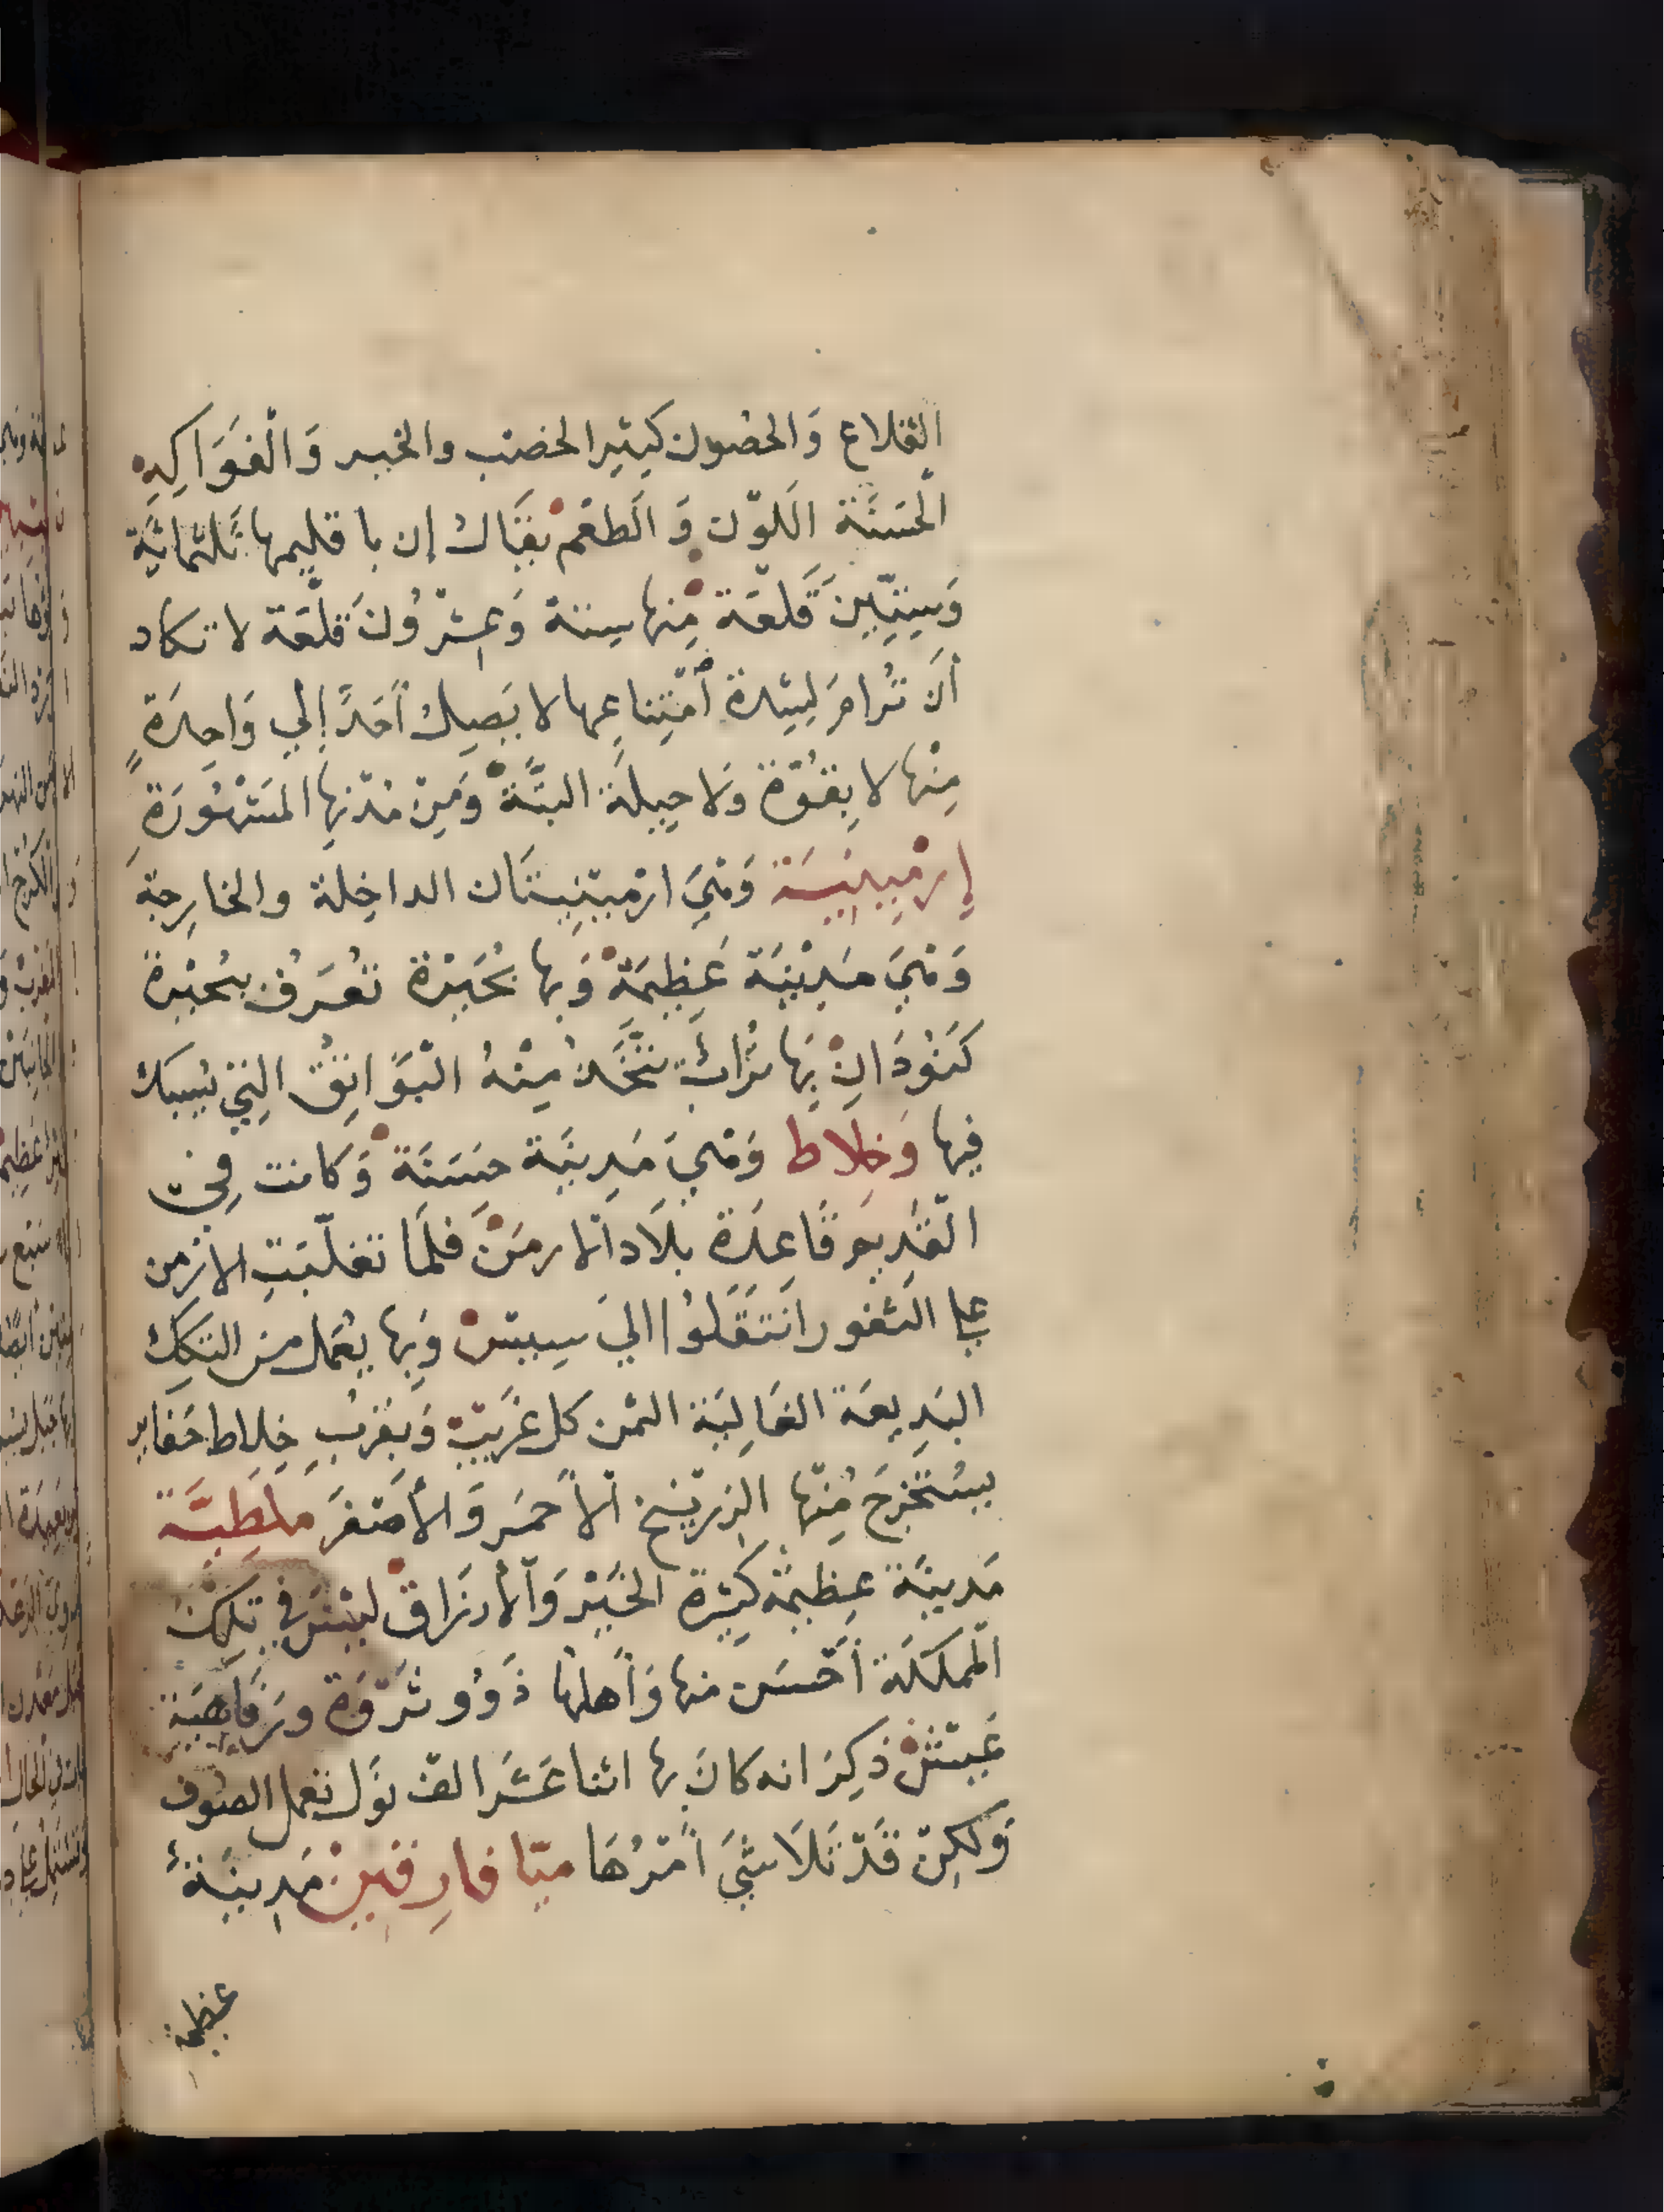 القلاع وَالحصُون كَثِير الخصْب والخير وَالْفَوَاكِهِ
الْحَسَنَة اللّوْن وَ الَطعْم يقَال إن باقليمها ثَلثمائَة
وَسِتِّينَ قَلعَة مِنها ستة وَعِشْرُونَ قلْعَة لا تكاد
أَن تُرامَ لِشِدة أمْتِناعِها لا يَصِل أَحَدً إلي وَاحِدَةٍ
مِنْها لا بِقُوّة وَلا حِيلَة البتَّةْ وَمِنْ مُدْنِها المَشْهُورَةِ
إرْمِينِيَة وَهْيَ ارْمينِيتَان الداخِلة والخارِجة
وَهْيَ مَدِيْنَة عَظِيمَةْ وَبها بُحَيْرَة تعُرَف ببُحَيْرة
كَنْوَدَانْ بِهَا تُرابٌ يتَّخَذ مِنْهُ الْبَوَاتِقُ الِتي يُسبك
فِيها وَخلاط وَهْيَ مَدِينَة حسَنَة وَكانت فِي
الْقَدِيمِ قَاعِدَة بلَاد الارمَنْ فلَمَا تغلّبَتِ الارْمن
علي الثغور انَتقَلُوا اليَ سِيسْ وَبِها يعُمل من التكك
البَدِيعَة الغَالِيَة الثمن كل غَرِيْبْ وَبقرْبِ خِلاط حَفاير
يسْتخْرَج مِنْها الزرنيخ الأحمَر وَالأصْفَر ملطِيَّة
مَدينَة عظِيمَة كثِيْرة الخَيْر وَالأرزَاقْ ليْسَ في تلك
المملكَة أحْسَن منها وَأهلهُا ذَوُو ثَرْوَة ورَفَاهِيَة
عَيْشْ ذكِرَ انه كانَ بها اثنا عَشَر الف نوَل تعمل الصُوف
وَلكِنْ قَدْ تَلَاشيَ أمْرُهَا ميّا فارِقينْ مَدِينَةٌ
عظيمة